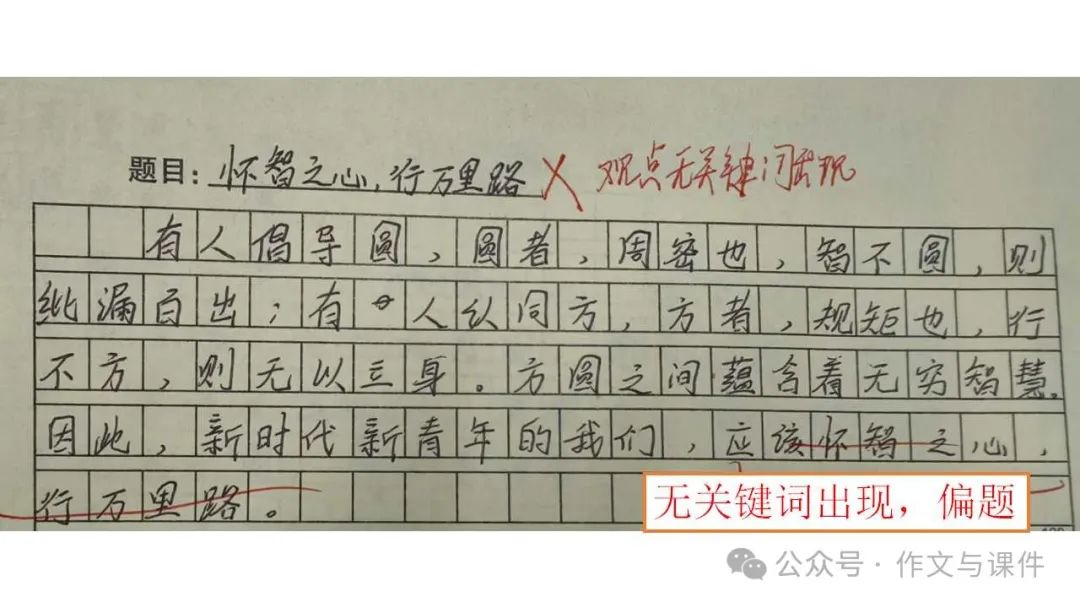 题目：怀智之心，行万里路 X 观点无关键词出现
有人倡导圆，圆者，周密也，智不圆，则
纰漏百出；有人认同方，方者，规矩也，行
不方，则无以立身。方圆之间蕴含着无穷智慧。
因此，新时代新青年的我们，应该怀智之心，
行万里路。
无关键词出现，偏题
公众号·作文与课件